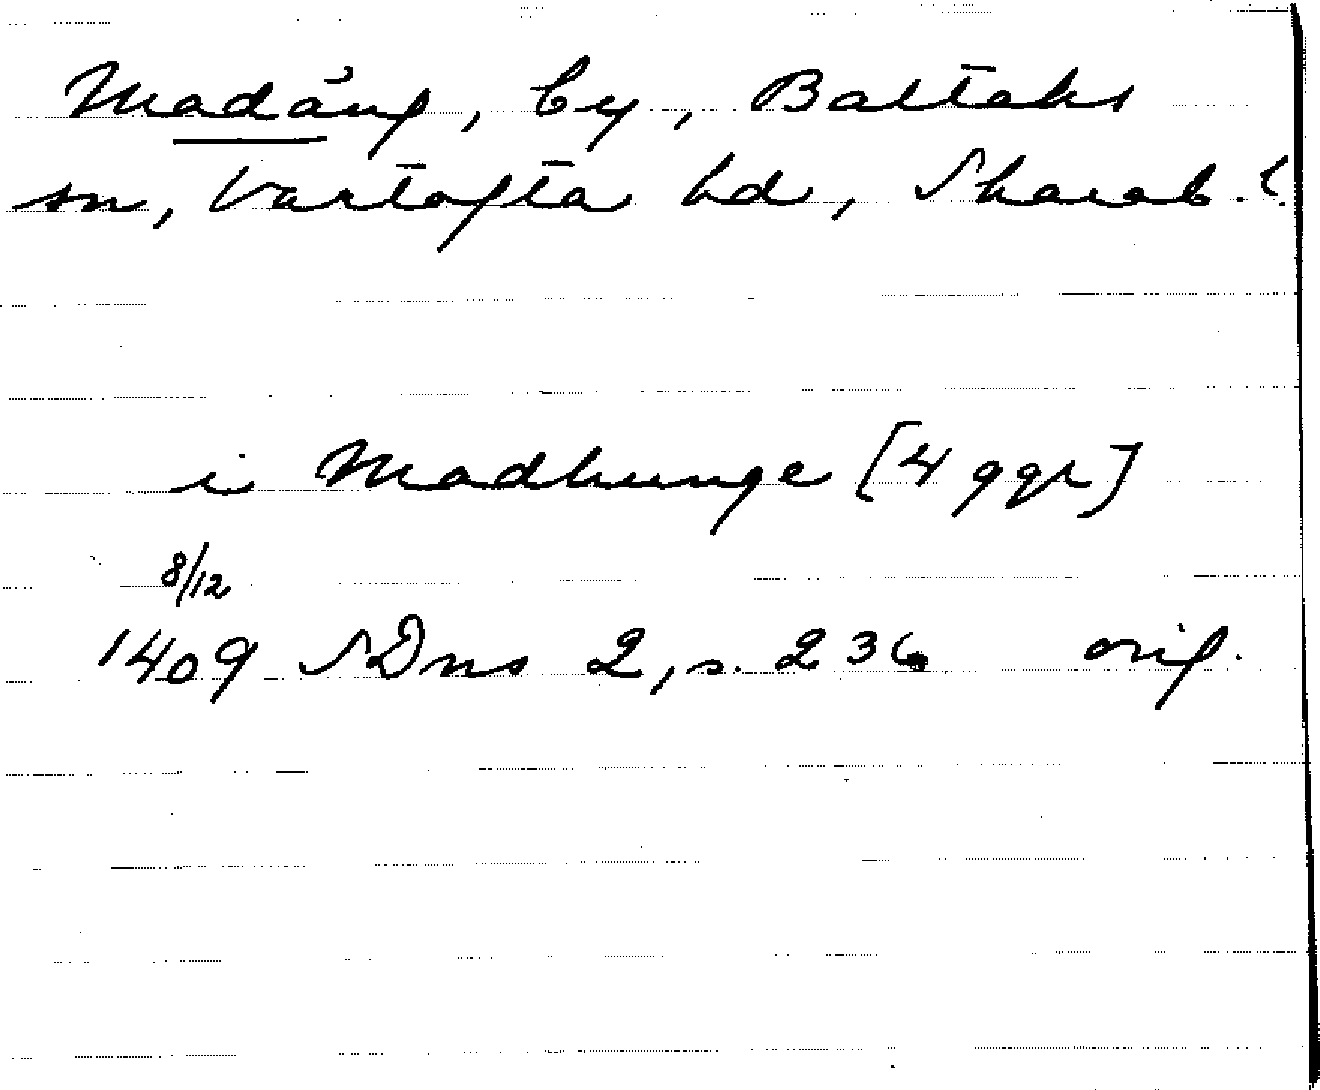 Madång, by, Baltaks
sn, Vartofta hd, Skarab. l.
i Madhunge [4 ggr]
8/12
1409 SDns 2, s. 236 orig.